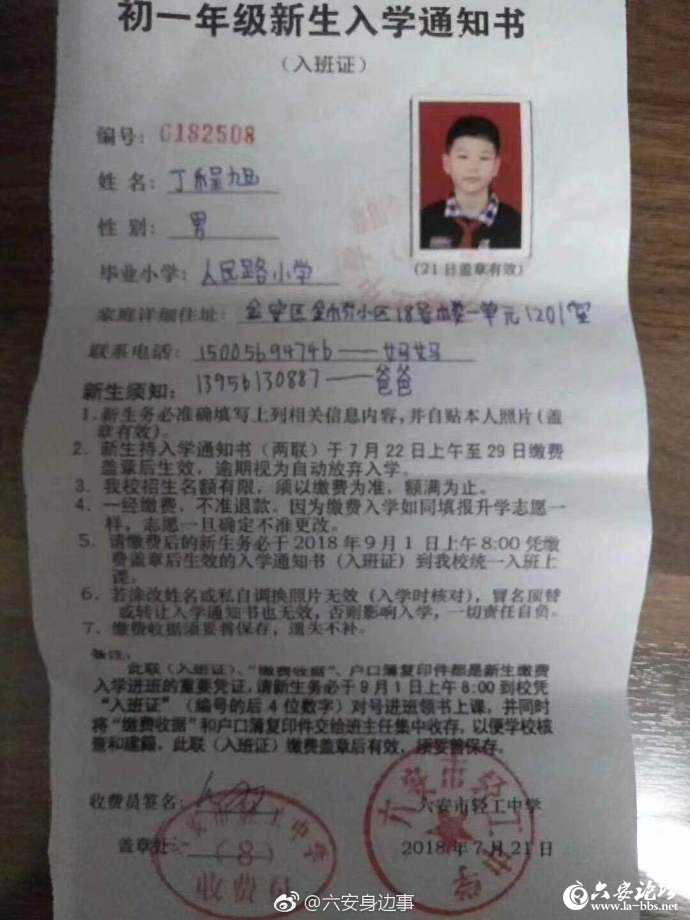 初一年级新生入学通知书
（入班证）
编号：0182508
姓名：丁程旭
性别：男
(21日盖章有效)
毕业小学：人民路小学
家庭详细住址：金安区 小区18号楼一单元1201室
联系电话：15005694746——妈妈
13956130887——爸爸
新生须知：
1．新生务必准确填写上列相关信息内容，并自贴本人照片（盖
章有效）。
2．新生持入学通知书（两联）于7月22日上午至29日缴费
盖章后生效，逾期视为自动放弃入学。
3．我校招生名额有限，须以缴费为准，额满为止。
4．一经缴费，不准退款。因为缴费入学如同填报升学志愿一
样，志愿一旦确定不准更改。
5．请缴费后的新生务必于2018年9月1日上午8:00凭缴
费盖章后生效的入学通知书（入班证）到我校统一入班上
课。
6．若涂改姓名或私自调换照片无效（入学时核对），冒名顶替
或转让入学通知书也无效，否则影响入学，一切责任自负。
7．缴费收据须妥善保存，遗失不补。
备注：
此联（入班证）、“缴费收据”、户口簿复印件都是新生缴费
入学进班的重要凭证，请新生务必于9月1日上午8:00到校凭
“入班证”（编号的后4位数字）对号进班领书上课，并同时
将“缴费收据”和户口簿复印件交给班主任集中收存，以便学校核
查和建籍。此联（入班证）缴费盖章后有效，须妥善保存。
收费员签名：
六安市轻工中学
盖章处：
(8)
2018年7月21日
六安市轻工中学
六安市轻工中学
@六安身边事
六安论坛
www.la-bbs.net